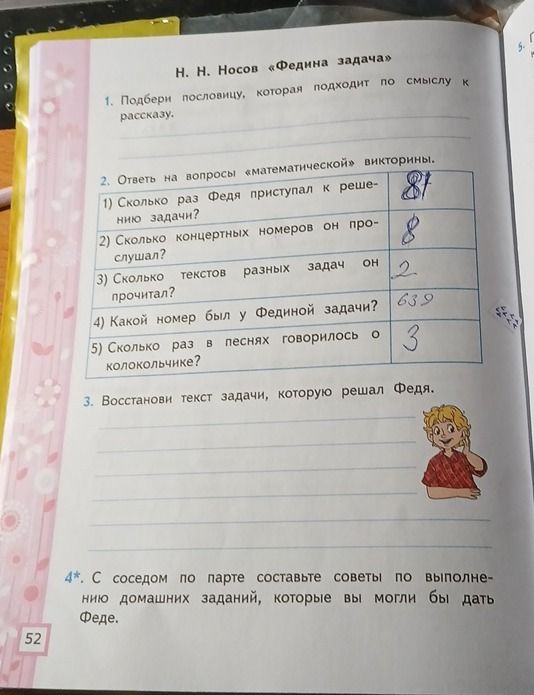 Н. Н. Носов «Федина задача»
1. Подбери пословицу, которая подходит по смыслу к
рассказу.
2. Ответь на вопросы «математической» викторины.
1) Сколько раз Федя приступал к реше-
нию задачи?
2) Сколько концертных номеров он про-
слушал?
8
3) Сколько текстов разных задач он
прочитал?
2
4) Какой номер был у Фединой задачи?
639
5) Сколько раз в песнях говорилось о
колокольчике?
3
3. Восстанови текст задачи, которую решал Федя.
4*. С соседом по парте составьте советы по выполне-
нию домашних заданий, которые вы могли бы дать
Феде.
52